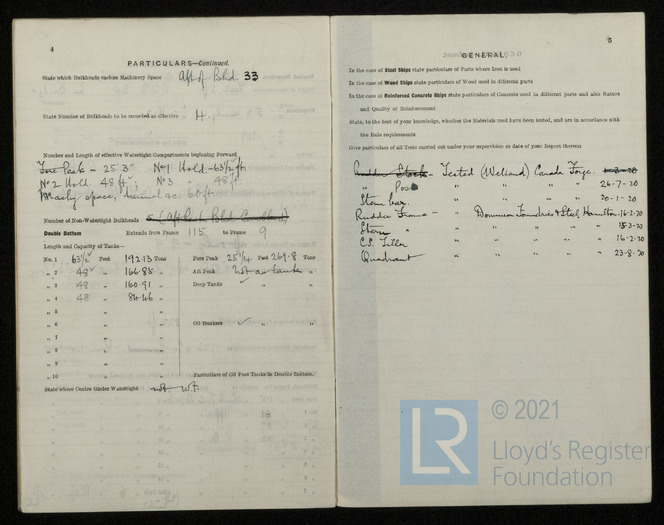 4
PARTICULARS—Continued.
State which Bulkheads enclose Machinery Space Aft of Blhd 33
State Number of Bulkheads to be recorded as effective 4.
Number and Length of effective Watertight Compartments beginning Forward
Fore Peak - 25' 3" No 1 Hold - 63 1/2 ft
No 2 Hold 48 ft ; No 3 " 48 ft.
Machy space, tunnel &c 60 ft
Number of Non-Watertight Bulkheads
Double Bottom Extends from Frame 115 to Frame 9
Length and Capacity of Tanks—
No. 1 63 1/2 Feet 192.13 Tons Fore Peak 25 1/4 Feet 269.8 Tons
" 2 48 " 166.85 " Aft Peak Not as tank "
" 3 48 " 160.91 " Deep Tanks
" 4 48 " 84.46 "
" 5 " "
" 6 " " Oil Bunkers " "
" 7 " "
" 8 " "
" 9 " "
" 10 " " Particulars of Oil Fuel Tanks in Double Bottom.
State where Centre Girder Watertight not W.T.
5
GENERAL.
In the case of Steel Ships state particulars of Parts where Iron is used
In the case of Wood Ships state particulars of Wood used in different parts
In the case of Reinforced Concrete Ships state particulars of Concrete used in different parts and also Nature
and Quality of Reinforcement
State, to the best of your knowledge, whether the Materials used have been tested, and are in accordance with
the Rule requirements
Give particulars of all Tests carried out under your supervision or date of Your Report thereon
Rudder Stock - Tested (Welland) Canada Forge.
" Post " " " " 26-7-20
Stem bar. " " " " 20-1-20
Rudder Frame - " Dominion Foundries & Steel, Hamilton. 16-2-20
Stern " " " " " 15-3-20
C.S. Tiller " " " " 16-2-20
Quadrant " " " " 23-8-20
LR
© 2021
Lloyd's Register
Foundation